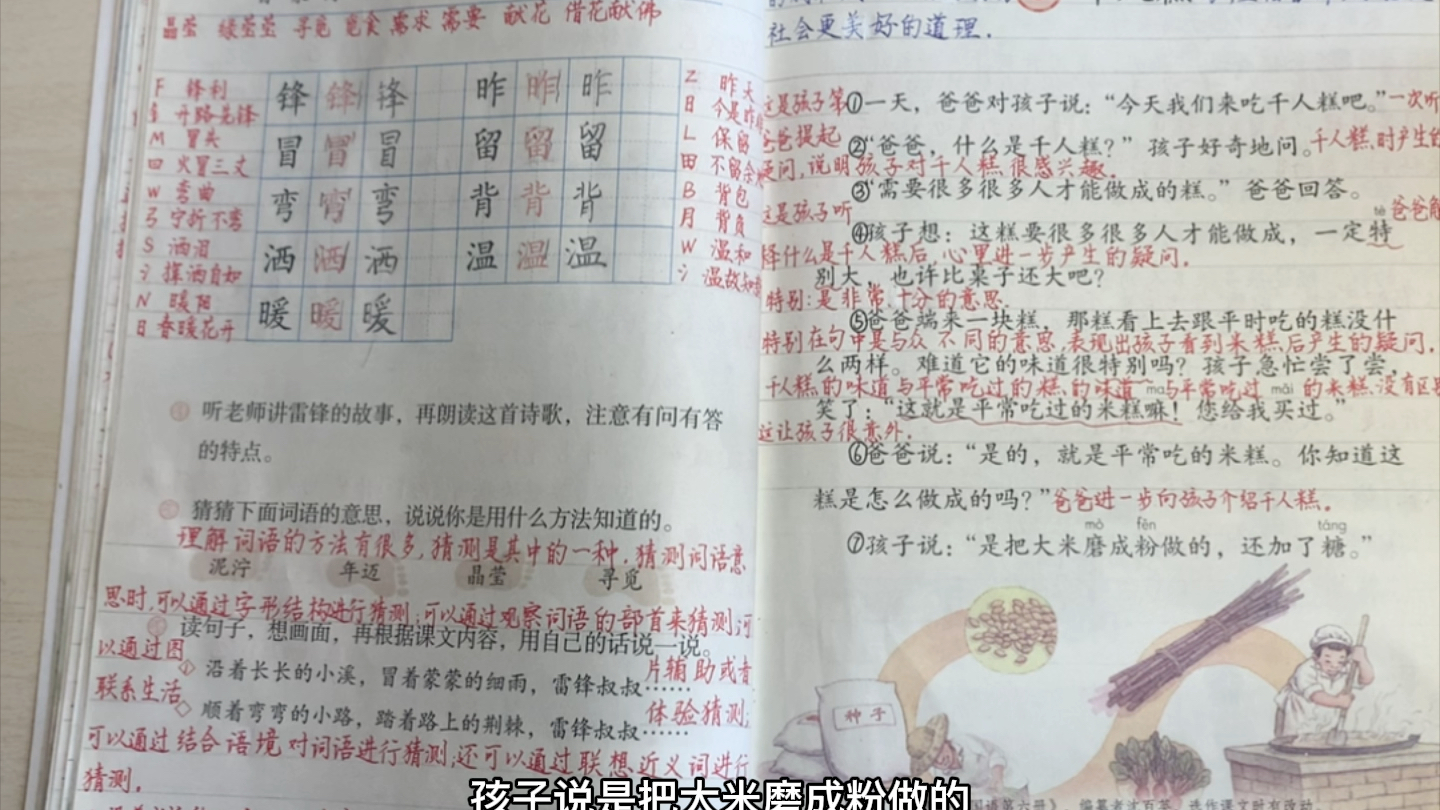 晶莹 绿莹莹 寻觅 觅食 需求 需要 献花 借花献佛
F 锋利
钅 开路先锋
M 冒失
四 火冒三丈
W 弯曲
弓 宁折不弯
S 洒泪
氵 挥洒自如
N 暖阳
日 春暖花开
锋 锋 锋 昨 昨 昨
冒 冒 冒 留 留 留
弯 弯 弯 背 背 背
洒 洒 洒 温 温 温
暖 暖 暖
Z 昨天
日 今是昨
L 保留
田 不留余
B 背包
月 背负
W 温和
氵 温故知
听老师讲雷锋的故事，再朗读这首诗歌，注意有问有答
的特点。
猜猜下面词语的意思，说说你是用什么方法知道的。
理解词语的方法有很多，猜测是其中的一种。猜测词语意
泥泞 年迈 晶莹 寻觅
思时，可以通过字形结构进行猜测；可以通过观察词语的部首来猜测；可
读句子，想画面，再根据课文内容，用自己的话说一说。
以通过图片辅助或者
◇ 沿着长长的小溪，冒着蒙蒙的细雨，雷锋叔叔……
联系生活体验猜测；
◇ 顺着弯弯的小路，踏着路上的荆棘，雷锋叔叔……
可以通过结合语境对词语进行猜测；还可以通过联想近义词进行
猜测。
社会更美好的道理。
①一天，爸爸对孩子说：“今天我们来吃千人糕吧。”
这是孩子第一次听
爸爸提起千人糕时产生的
②“爸爸，什么是千人糕？”孩子好奇地问。
疑问，说明孩子对千人糕很感兴趣。
③“需要很多很多人才能做成的糕。”爸爸回答。
这是孩子听爸爸解
tè
④孩子想：这糕要很多很多人才能做成，一定特
释什么是千人糕后，心里进一步产生的疑问。
别大，也许比桌子还大吧？
特别：是非常、十分的意思。
⑤爸爸端来一块糕，那糕看上去跟平时吃的糕没什
特别在句中是与众不同的意思，表现出孩子看到米糕后产生的疑问。
么两样。难道它的味道很特别吗？孩子急忙尝了尝，
千人糕的味道与平常吃过的糕的味道与平常吃过的米糕没有区别
ma mǎi
笑了：“这就是平常吃过的米糕嘛！您给我买过。”
这让孩子很意外。
⑥爸爸说：“是的，就是平常吃的米糕。你知道这
糕是怎么做成的吗？”爸爸进一步向孩子介绍千人糕。
mò fěn táng
⑦孩子说：“是把大米磨成粉做的，还加了糖。”
种子
孩子说是把大米磨成粉做的